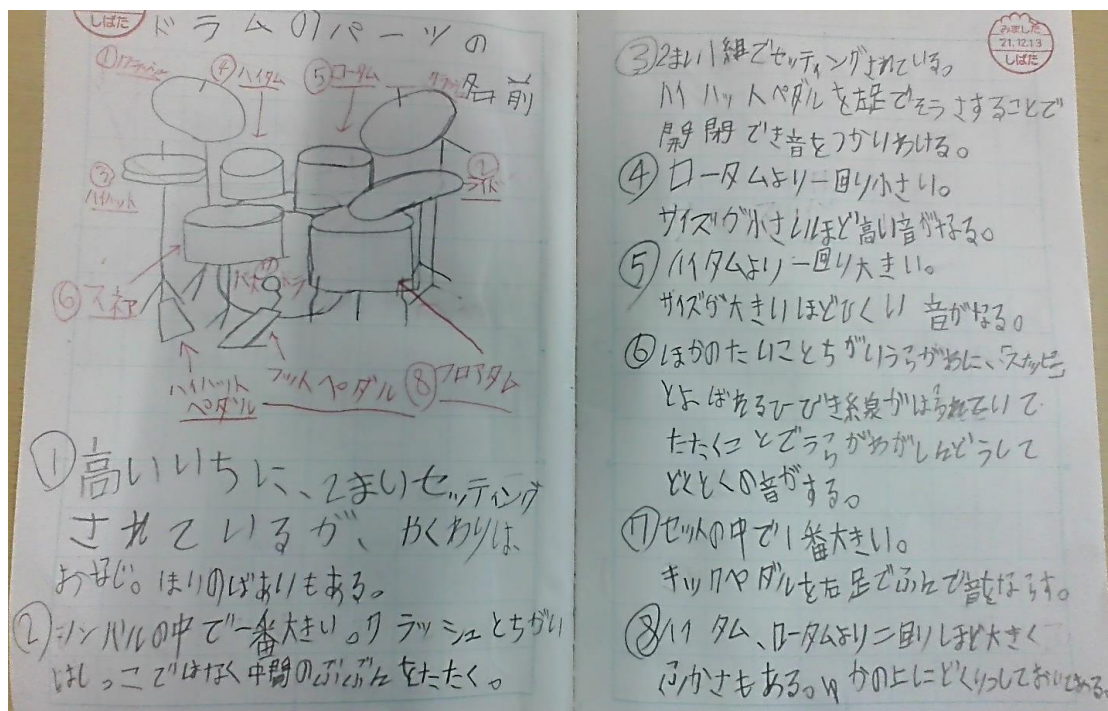 しばた
ドラムのパーツの
名前
①クラッシュ
④ハイタム
⑤ロータム
クラッシュ
③
ハイハット
②
ライド
⑦
バスドラ
⑥スネア
ハイハット
ペダル
フットペダル
⑧フロアタム
①高いいちに、2まいセッティング
されているが、やくわりは、
おなじ。ほりのばあいもある。
②シンバルの中で一番大きい。クラッシュとちがい
はしっこではなく中間のぶぶんをたたく。
みました
21.12.13
しばた
③2まい1組でセッティングされている。
ハイハットペダルを左足でそうさすることで
開閉でき音をつかいわける。
④ロータムより一回り小さい。
サイズが小さいほど高い音がなる。
⑤ハイタムより一回り大きい。
サイズが大きいほどひくい音がなる。
⑥ほかのたいことちがいうらがわに、「スナッピー」
とよばれるひびき線がはられていて
たたくことでうらがわがしんどうして
どくとくの音がする。
⑦セットの中で1番大きい。
キックペダルを右足でふんで音をならす。
⑧ハイタム、ロータムより二回りほど大きく
ふかさもある。ゆかの上にどくりつしておいてある。